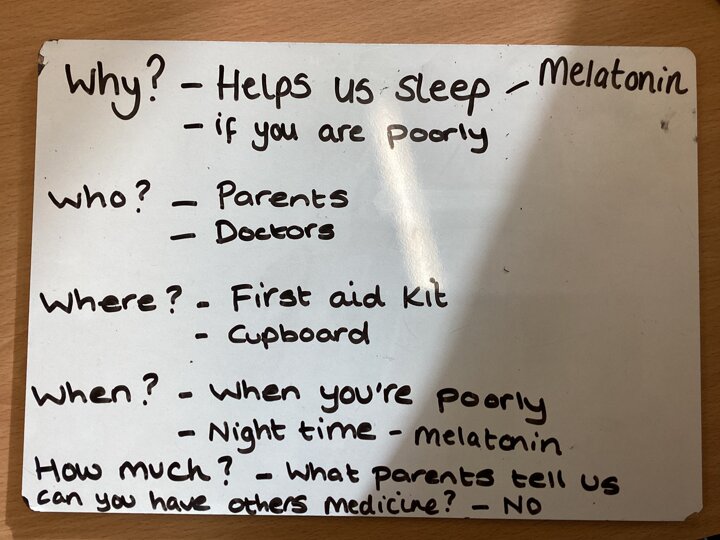 Why? - Helps us sleep - Melatonin
- if you are poorly
Who? - Parents
- Doctors
Where? - First aid Kit
- Cupboard
When? - When you're poorly
- Night time - melatonin
How much? - What parents tell us
can you have others medicine? - NO